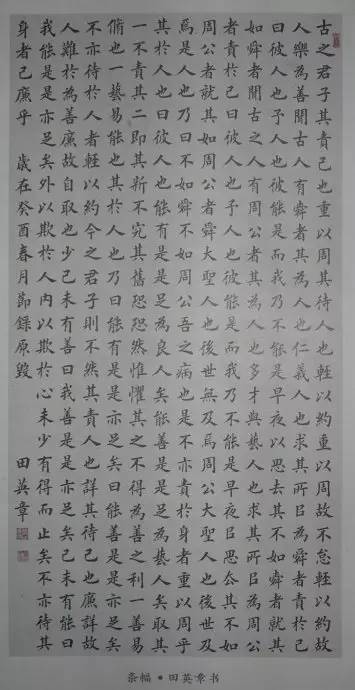 古之君子其責己也重以周其待人也輕以約重以周故不怠輕以約故
人樂為善聞古人有舜者其為人也仁義人也求其所㠯為舜者責於己
曰彼人也予人也彼能是而我乃不能是早夜以思去其不如舜者就其
如舜者聞古之人有周公者其為人也多才與藝人也求其所㠯為周公
者責於己曰彼人也予人也彼能是而我乃不能是早夜㠯思去其不如
周公者就其如周公者舜大聖人也後世無及焉周公大聖人也後世及
焉是人也乃曰不如舜不如周公吾之病也是不亦責於身者重以周乎
其於人也曰彼人也能有是是足為良人矣能善是是足為藝人矣取其
一不責其二即其新不究其舊恐恐然惟懼其人之不得為善之利一善易
脩也一藝易能也其於人也乃曰能有是是亦足矣曰能善是是亦足矣
不亦待於人者輕以約今之君子則不然其責人也詳其待己也廉詳故
人難於為善廉故自取也少己未有善曰我善是是亦足矣己未有能曰
我能是是亦足矣外以欺於人內以欺於心未少有得而止矣不亦待其
身者已廉乎 歲在癸酉春月節錄原毀 田英章
条幅·田英章书